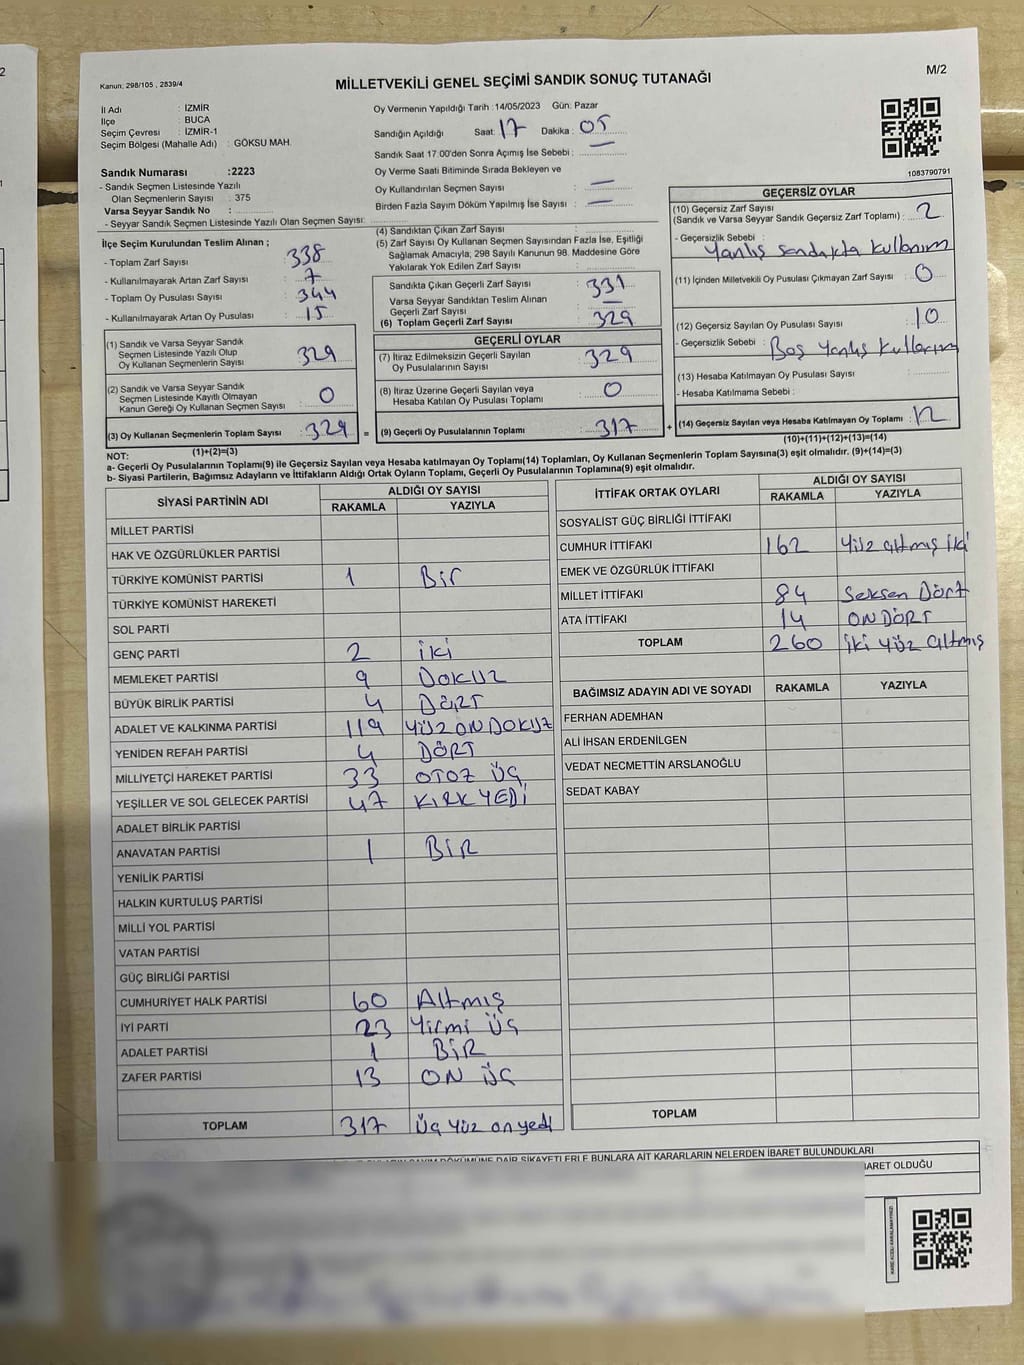 Kanun: 298/105 , 2839/4
MİLLETVEKİLİ GENEL SEÇİMİ SANDIK SONUÇ TUTANAĞI
M/2
İl Adı : İZMİR
İlçe : BUCA
Seçim Çevresi : İZMİR-1
Seçim Bölgesi (Mahalle Adı) : GÖKSU MAH.
Oy Vermenin Yapıldığı Tarih :14/05/2023 Gün: Pazar
Sandığın Açıldığı Saat: 17 Dakika : 05
Sandık Saat 17:00'den Sonra Açılmış İse Sebebi : —
Oy Verme Saati Bitiminde Sırada Bekleyen ve
Oy Kullandırılan Seçmen Sayısı : —
Birden Fazla Sayım Döküm Yapılmış İse Sayısı : —
1083790791
Sandık Numarası :2223
- Sandık Seçmen Listesinde Yazılı
Olan Seçmenlerin Sayısı : 375
Varsa Seyyar Sandık No :
- Seyyar Sandık Seçmen Listesinde Yazılı Olan Seçmen Sayısı:
İlçe Seçim Kurulundan Teslim Alınan ;
- Toplam Zarf Sayısı : 338
- Kullanılmayarak Artan Zarf Sayısı : 7
- Toplam Oy Pusulası Sayısı : 344
- Kullanılmayarak Artan Oy Pusulası : 15
(1) Sandık ve Varsa Seyyar Sandık
Seçmen Listesinde Yazılı Olup
Oy Kullanan Seçmenlerin Sayısı : 329
(2) Sandık ve Varsa Seyyar Sandık
Seçmen Listesinde Kayıtlı Olmayan
Kanun Gereği Oy Kullanan Seçmen Sayısı : 0
(3) Oy Kullanan Seçmenlerin Toplam Sayısı : 329
(1)+(2)=(3)
(4) Sandıktan Çıkan Zarf Sayısı :
(5) Zarf Sayısı Oy Kullanan Seçmen Sayısından Fazla İse, Eşitliği
Sağlamak Amacıyla; 298 Sayılı Kanunun 98. Maddesine Göre
Yakılarak Yok Edilen Zarf Sayısı :
Sandıkta Çıkan Geçerli Zarf Sayısı : 331
Varsa Seyyar Sandıktan Teslim Alınan
Geçerli Zarf Sayısı : —
(6) Toplam Geçerli Zarf Sayısı : 329
GEÇERLİ OYLAR
(7) İtiraz Edilmeksizin Geçerli Sayılan
Oy Pusulalarının Sayısı : 329
(8) İtiraz Üzerine Geçerli Sayılan veya
Hesaba Katılan Oy Pusulası Toplamı : 0
= (9) Geçerli Oy Pusulalarının Toplamı : 317
GEÇERSİZ OYLAR
(10) Geçersiz Zarf Sayısı
(Sandık ve Varsa Seyyar Sandık Geçersiz Zarf Toplamı) : 2
- Geçersizlik Sebebi : Yanlış sandakta kullanım
(11) İçinden Milletvekili Oy Pusulası Çıkmayan Zarf Sayısı : 0
(12) Geçersiz Sayılan Oy Pusulası Sayısı : 10
- Geçersizlik Sebebi : Boş Yanlış kullanım
(13) Hesaba Katılmayan Oy Pusulası Sayısı :
- Hesaba Katılmama Sebebi :
+ (14) Geçersiz Sayılan veya Hesaba Katılmayan Oy Toplamı : 12
(10)+(11)+(12)+(13)=(14)
NOT:
a- Geçerli Oy Pusulalarının Toplamı(9) ile Geçersiz Sayılan veya Hesaba katılmayan Oy Toplamı(14) Toplamları, Oy Kullanan Seçmenlerin Toplam Sayısına(3) eşit olmalıdır. (9)+(14)=(3)
b- Siyasi Partilerin, Bağımsız Adayların ve İttifakların Aldığı Ortak Oyların Toplamı, Geçerli Oy Pusulalarının Toplamına(9) eşit olmalıdır.
SİYASİ PARTİNİN ADI ALDIĞI OY SAYISI
RAKAMLA YAZIYLA
MİLLET PARTİSİ
HAK VE ÖZGÜRLÜKLER PARTİSİ
TÜRKİYE KOMÜNİST PARTİSİ 1 Bir
TÜRKİYE KOMÜNİST HAREKETİ
SOL PARTİ
GENÇ PARTİ 2 iki
MEMLEKET PARTİSİ 9 DOKUZ
BÜYÜK BİRLİK PARTİSİ 4 DÖRT
ADALET VE KALKINMA PARTİSİ 119 YÜZ ON DOKUZ
YENİDEN REFAH PARTİSİ 4 DÖRT
MİLLİYETÇİ HAREKET PARTİSİ 33 OTOZ ÜÇ
YEŞİLLER VE SOL GELECEK PARTİSİ 47 KIRK YEDİ
ADALET BİRLİK PARTİSİ
ANAVATAN PARTİSİ 1 BİR
YENİLİK PARTİSİ
HALKIN KURTULUŞ PARTİSİ
MİLLİ YOL PARTİSİ
VATAN PARTİSİ
GÜÇ BİRLİĞİ PARTİSİ
CUMHURİYET HALK PARTİSİ 60 Altmış
İYİ PARTİ 23 Yirmi üç
ADALET PARTİSİ 1 BİR
ZAFER PARTİSİ 13 ON üç
TOPLAM 317 üç yüz onyedi
İTTİFAK ORTAK OYLARI ALDIĞI OY SAYISI
RAKAMLA YAZIYLA
SOSYALİST GÜÇ BİRLİĞİ İTTİFAKI
CUMHUR İTTİFAKI 162 Yüz altmış iki
EMEK VE ÖZGÜRLÜK İTTİFAKI
MİLLET İTTİFAKI 84 Seksen Dört
ATA İTTİFAKI 14 ON DÖRT
TOPLAM 260 iki yüz altmış
BAĞIMSIZ ADAYIN ADI VE SOYADI RAKAMLA YAZIYLA
FERHAN ADEMHAN
ALİ İHSAN ERDENİLGEN
VEDAT NECMETTİN ARSLANOĞLU
SEDAT KABAY
TOPLAM
DÖKÜMÜNE DAİR ŞİKAYETLERLE BUNLARA AİT KARARLARIN NELERDEN İBARET BULUNDUKLARI
İBARET OLDUĞU